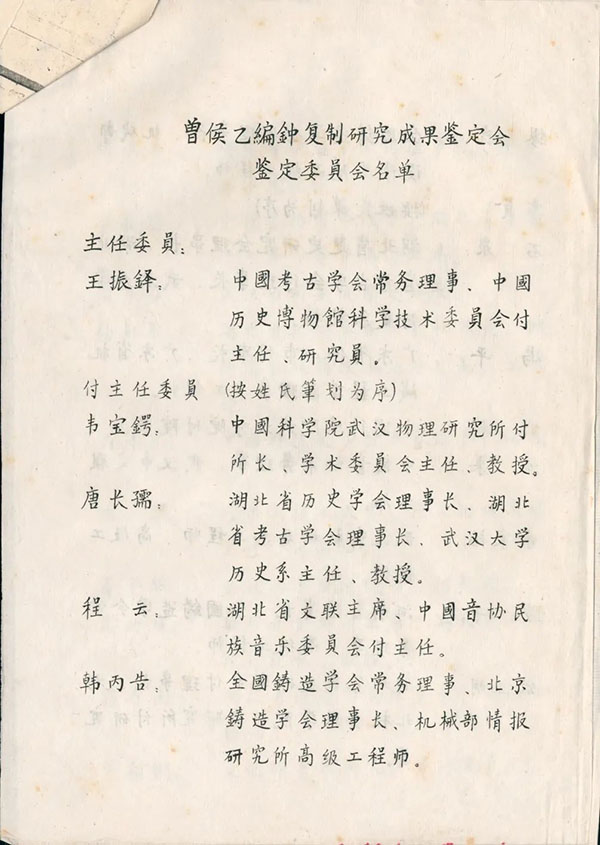 曽侯乙編鈡复制研究成果鉴定会
鉴定委員会名单
主任委員：
王振铎： 中國考古学会常务理事、中國
历史博物館科学技术委員会付
主任、研究員。
付主任委員 (按姓氏筆划为序)
韦宝鍔： 中國科学院武汉物理研究所付
所长、学术委員会主任、教授。
唐长孺： 湖北省历史学会理事长、湖北
省考古学会理事长、武汉大学
历史系主任、教授。
程 云： 湖北省文联主席、中國音协民
族音乐委員会付主任。
韩丙告： 全國鋳造学会常务理事、北京
鋳造学会理事长、机械部情报
研究所高级工程师。